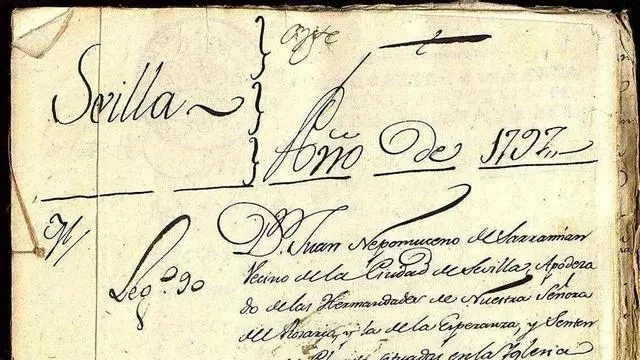 Sevilla
Año de 1797
Leg.º 90
D. Juan Nepomuceno de Sarramian
Vecino de la Ciudad de Sevilla, Apodera
do de las Hermandades de Nuestra Señora
del Rosario, y la de la Esperanza, y Senten
situadas en la Iglesia